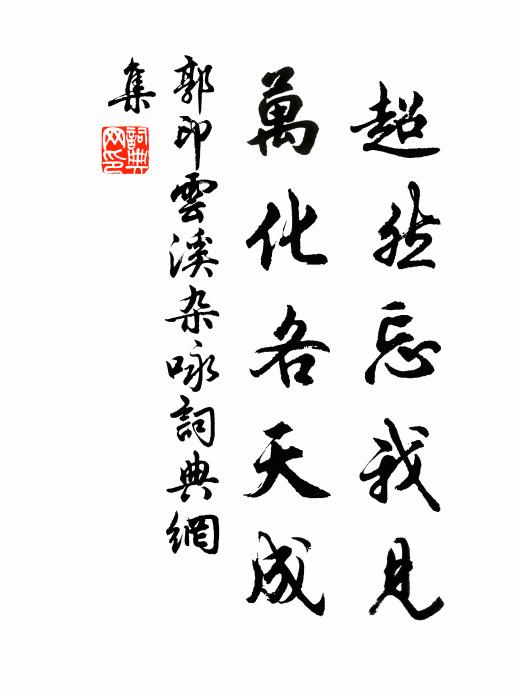 超然忘我見
萬化各天成
郭印雲溪杂咏詞典網
集
詞典網印